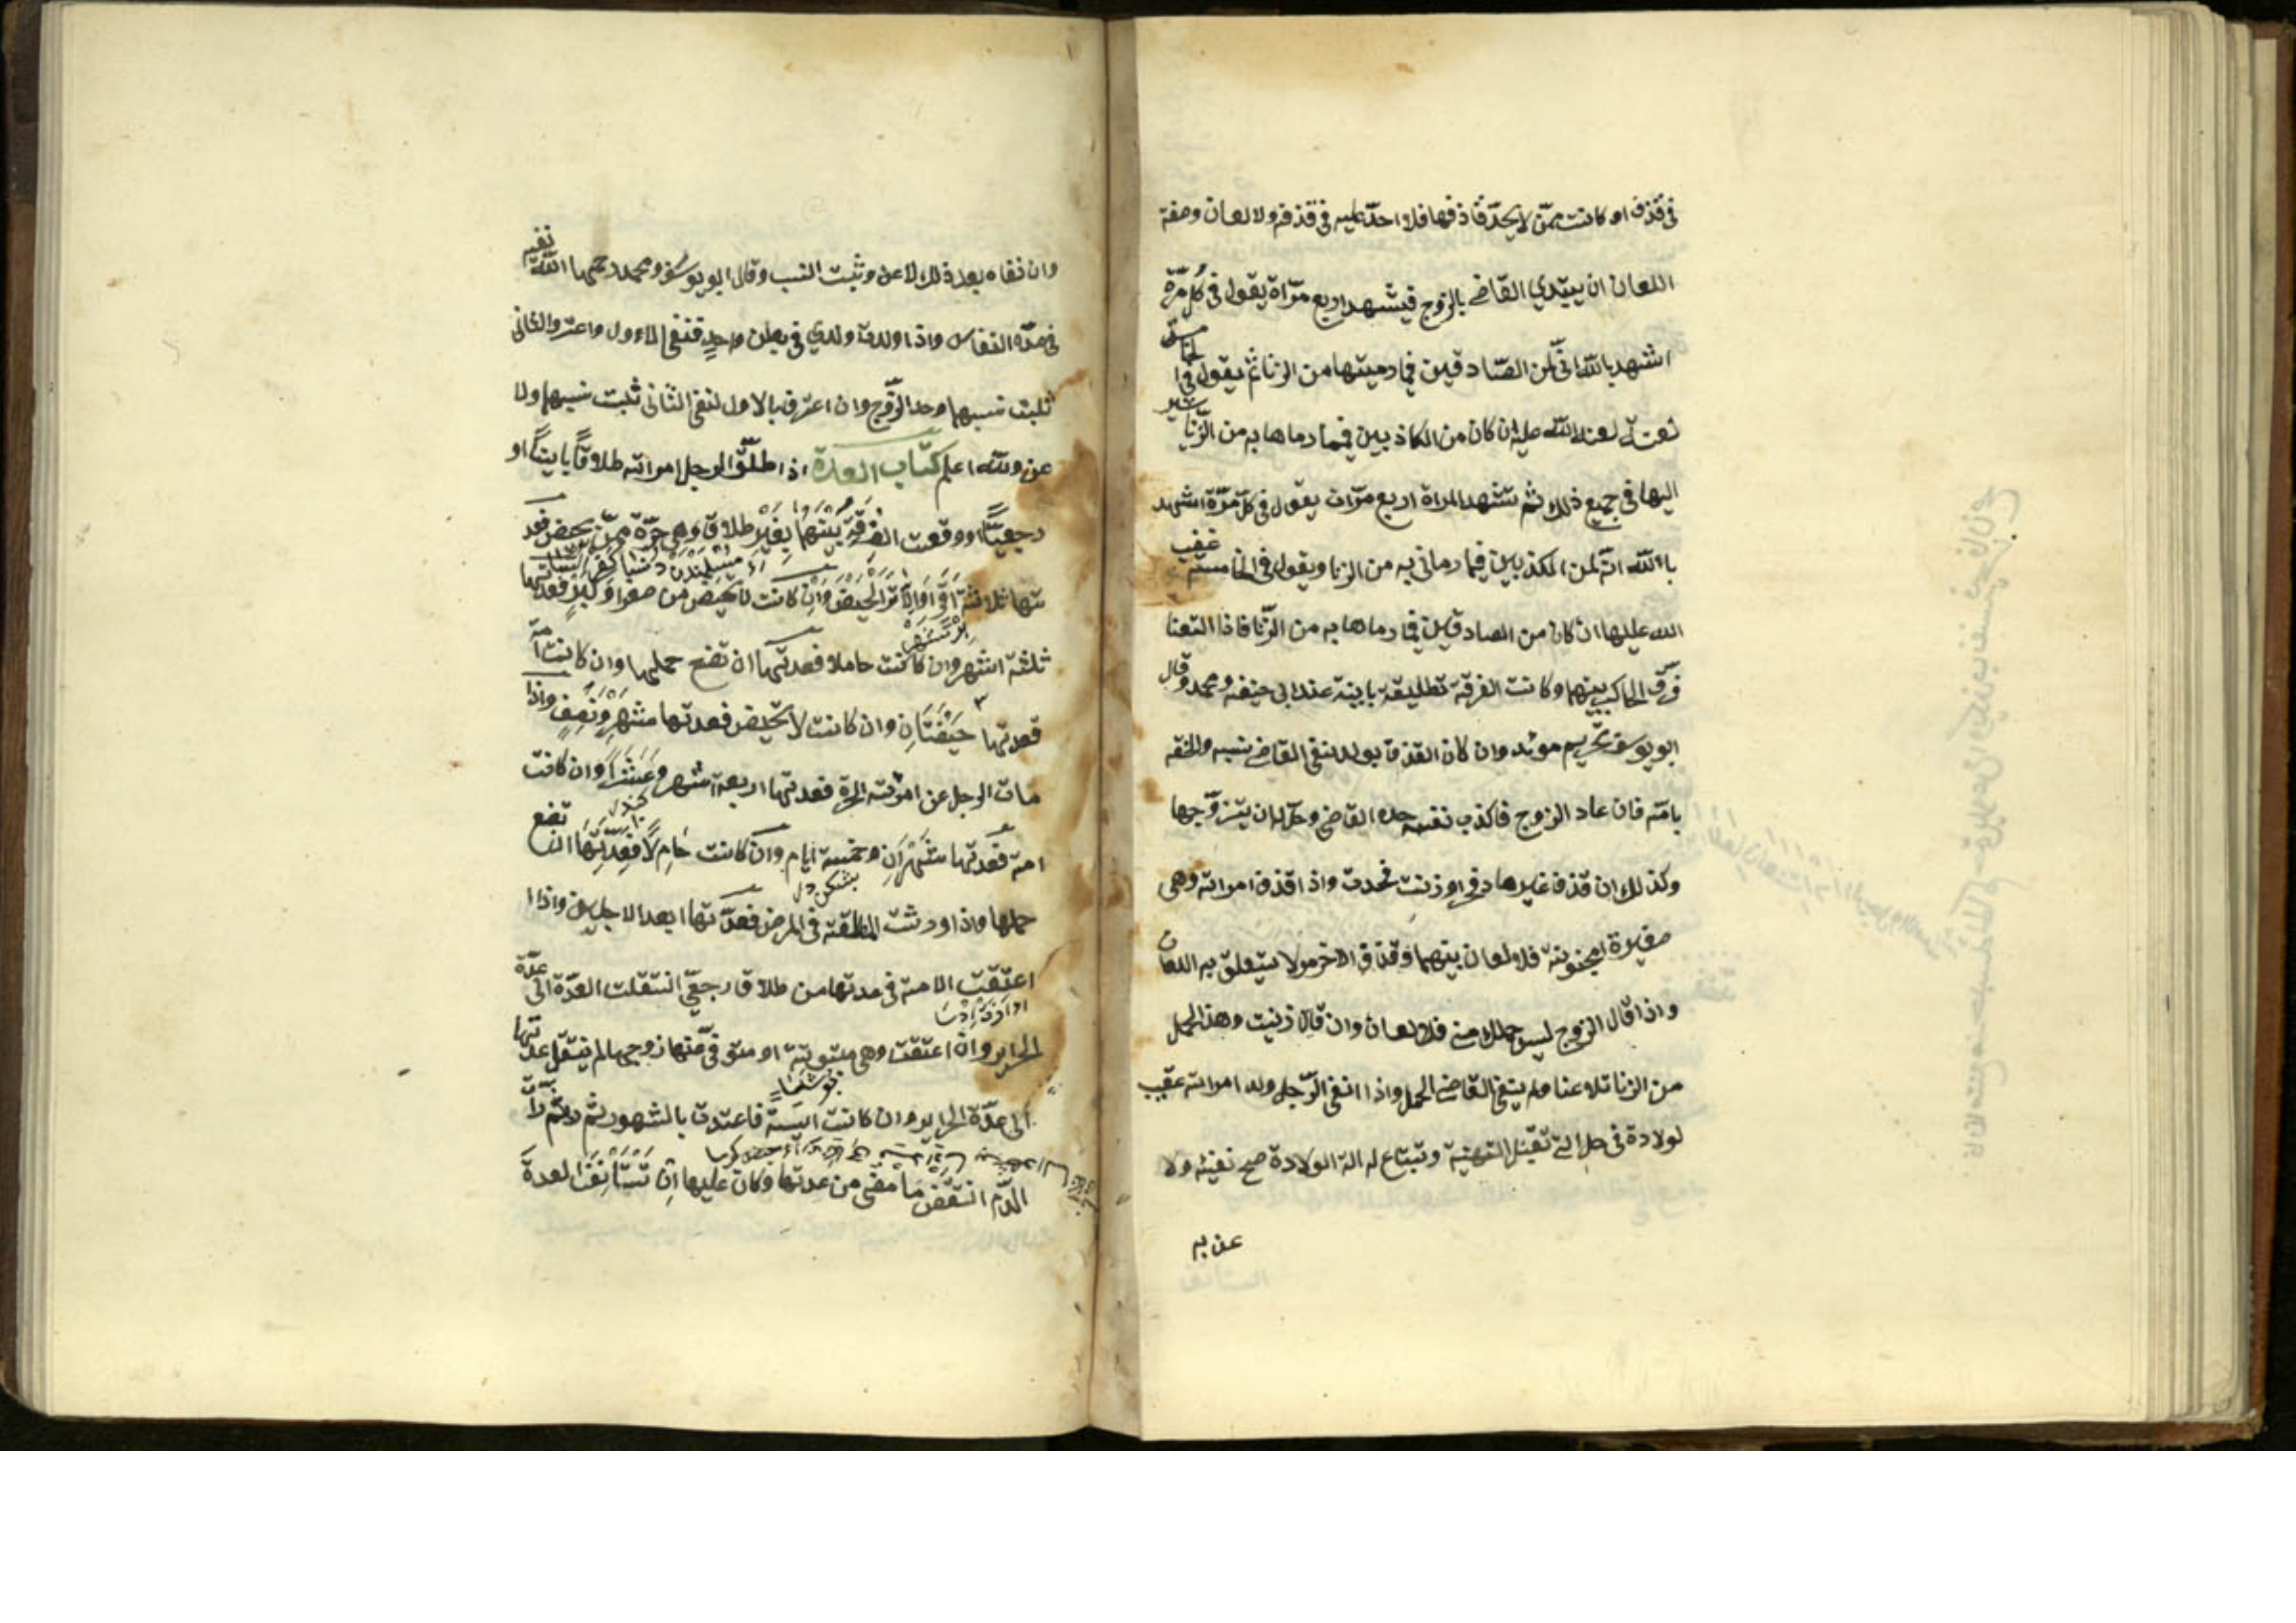 فى قذف او كانت ممّن لا يحدّ قاذفها فلا حدّ عليه فى قذفه ولا لعان وصفة
اللعان ان يبتدي القاضى بالزوج فيشهد اربع مرّاة يقول فى كل مرّة
اشهد بالله انّى لمن الصّادقين فيما رميتها من الزنا ثم يقول فى الخامسة
لعنة الله عليه ان كان من الكاذبين فيما رماها به من الزّنا يشير
اليها فى جميع ذلك ثم تشهد المراة اربع مرّات يقول فى كلّ مرّة اشهد
باالله انّه لمن الكذبين فيما رمانى به من الزنا ويقول فى الخامسة غضب
الله عليها ان كان من الصادقين فيما رماها به من الزّنا فاذا التعنا
فرّق الحاكم بينهما وكانت الفرقة تطليقة باينة عند ابى حنيفة ومحمد وقال
ابو يوسف تحريم موبد وان كان القذف بولد نفى القاضى نسبه والحقه
بامّه فان عاد الزوج فاكذب نفسه حده القاضى وحلّ له ان يتزوّجها
وكذلك ان قذف غيرها او زنت فحدت واذا قذف امراته وهى
صغيرة او مجنونة فلا لعان بينهما وقذف الاخرس لا يتعلق به اللعان
واذا قال الزوج ليس حملك منى فلا لعان وان قال زنيت وهذا الحمل
من الزنا تلاعنا ولم ينفى القاضى الحمل واذا انفى الرّجل ولد امراته عقيب
لولادة فى حال التى تقبل التهنية وتبتاع له الة الولادة صح نفيه ولا
عن به
وان نفاه بعد ذلك لاعن وثبت النسب وقال ابو يوسف ومحمد رحمهما الله نفيه
فى مدّة النفاس واذا ولدت ولدي فى بطن واحدٍ فنفى الاوول واعترف والثانى
ثبت نسبهما وحد الزّوج وان اعترف بالاول لنفى الثانى ثبت نسبهما ولا
عن والله اعلم كتاب العدة اذا طلّق الرجل امراته طلاقًا باينًا او
رجعيًّا او وقعت الفُرقَةُ بَينَهما بِغَيرِ طلاق وهى حرّة ممّن يحض فعد
تها ثلاثة اقراء والاقراء الحَيض وَاِن كانت لا تحيض من صغر او كبر فعدتها
ثلثة اشهر وان كانت حاملا فعدتها ان تضع حملها وان كانت امة
فعدتها حَيضَتَانِ وان كانت لا تحيض فعدتها شهر وَنِصف واذا
مات الرجل عن امرئته الحرة فعدتها اربعة اشهر وعَشَراً وان كانت
امة فعدتها شَهرَان وخمسة ايّام وان كانت حَامِلاً فعِدّتُهَا ان تضع
حملها واذا ورثت المطلقة فى المرض فعدّتها ابعد الاجلين واذا
اعتقت الامة فى عدتها من طلاق رجعى انتقلت العدّة الى عدّة
الحراير وان اعتقت وهى مبتوتة او متوفى عنها زوجها لم تنتقل عدّتها
الى عدّة الحراير وان كانت ايسة فاعتدت بالشهور ثم رات
الدّم انتقض ما مضى من عدتها وكان عليها ان تستأنف العدة